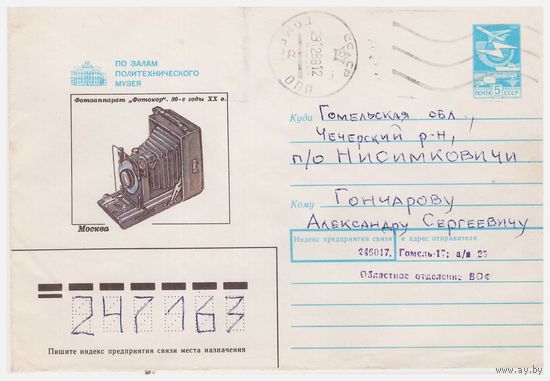 ПО ЗАЛАМ
ПОЛИТЕХНИЧЕСКОГО
МУЗЕЯ
Фотоаппарат „Фотокор". 30-е годы XX в.
Москва
ПОЧТА 5 СССР
Куда Гомельская обл.,
Чечерский р-н,
п/о Нисимковичи
Кому Гончарову
Александру Сергеевичу
Индекс предприятия связи и адрес отправителя
246017, Гомель-17; а/я 25
Областное отделение ВОФ
247163
Пишите индекс предприятия связи места назначения
www.ay.by